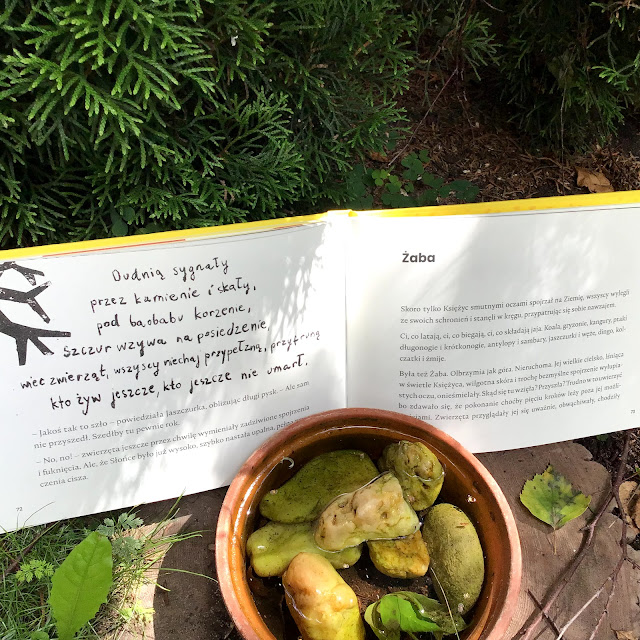 Dudnią sygnały
przez kamienie i skały,
pod baobabu korzenie,
szczur wzywa na posiedzenie,
wiec zwierząt, wszyscy niechaj przypełzną, przyfruną
kto żyw jeszcze, kto jeszcze nie umarł.
– Jakoś tak to szło – powiedziała jaszczurka, oblizując długi pysk. – Ale sam
nie przyszedł. Szedłby tu pewnie rok.
– No, no! – zwierzęta jeszcze przez chwilę wymieniały zadziwione spojrzenia
i fuknięcia. Ale, że Słońce było już wysoko, szybko nastała upalna, pełna
czenia cisza.
72
Żaba
Skoro tylko Księżyc smutnymi oczami spojrzał na Ziemię, wszyscy wylegli
ze swoich schronień i stanęli w kręgu, przypatrując się sobie nawzajem.
Ci, co latają, ci, co biegają, ci, co składają jaja. Koala, gryzonie, kangury, ptaki
długonogie i krótkonogie, antylopy i sambary, jaszczurki i węże, dingo, kol-
czatki i żmije.
Była też Żaba. Olbrzymia jak góra. Nieruchoma. Jej wielkie cielsko, lśniące
w świetle Księżyca, wilgotna skóra i trochę bezmyślne spojrzenie wyłupia-
stych oczu, onieśmielały. Skąd się tu wzięła? Przyszła? Trudno w to uwierzyć,
bo zdawało się, że pokonanie choćby pięciu kroków leży poza jej możli-
Zwierzęta przyglądały jej się uważnie, obwąchiwały, chodziły
73